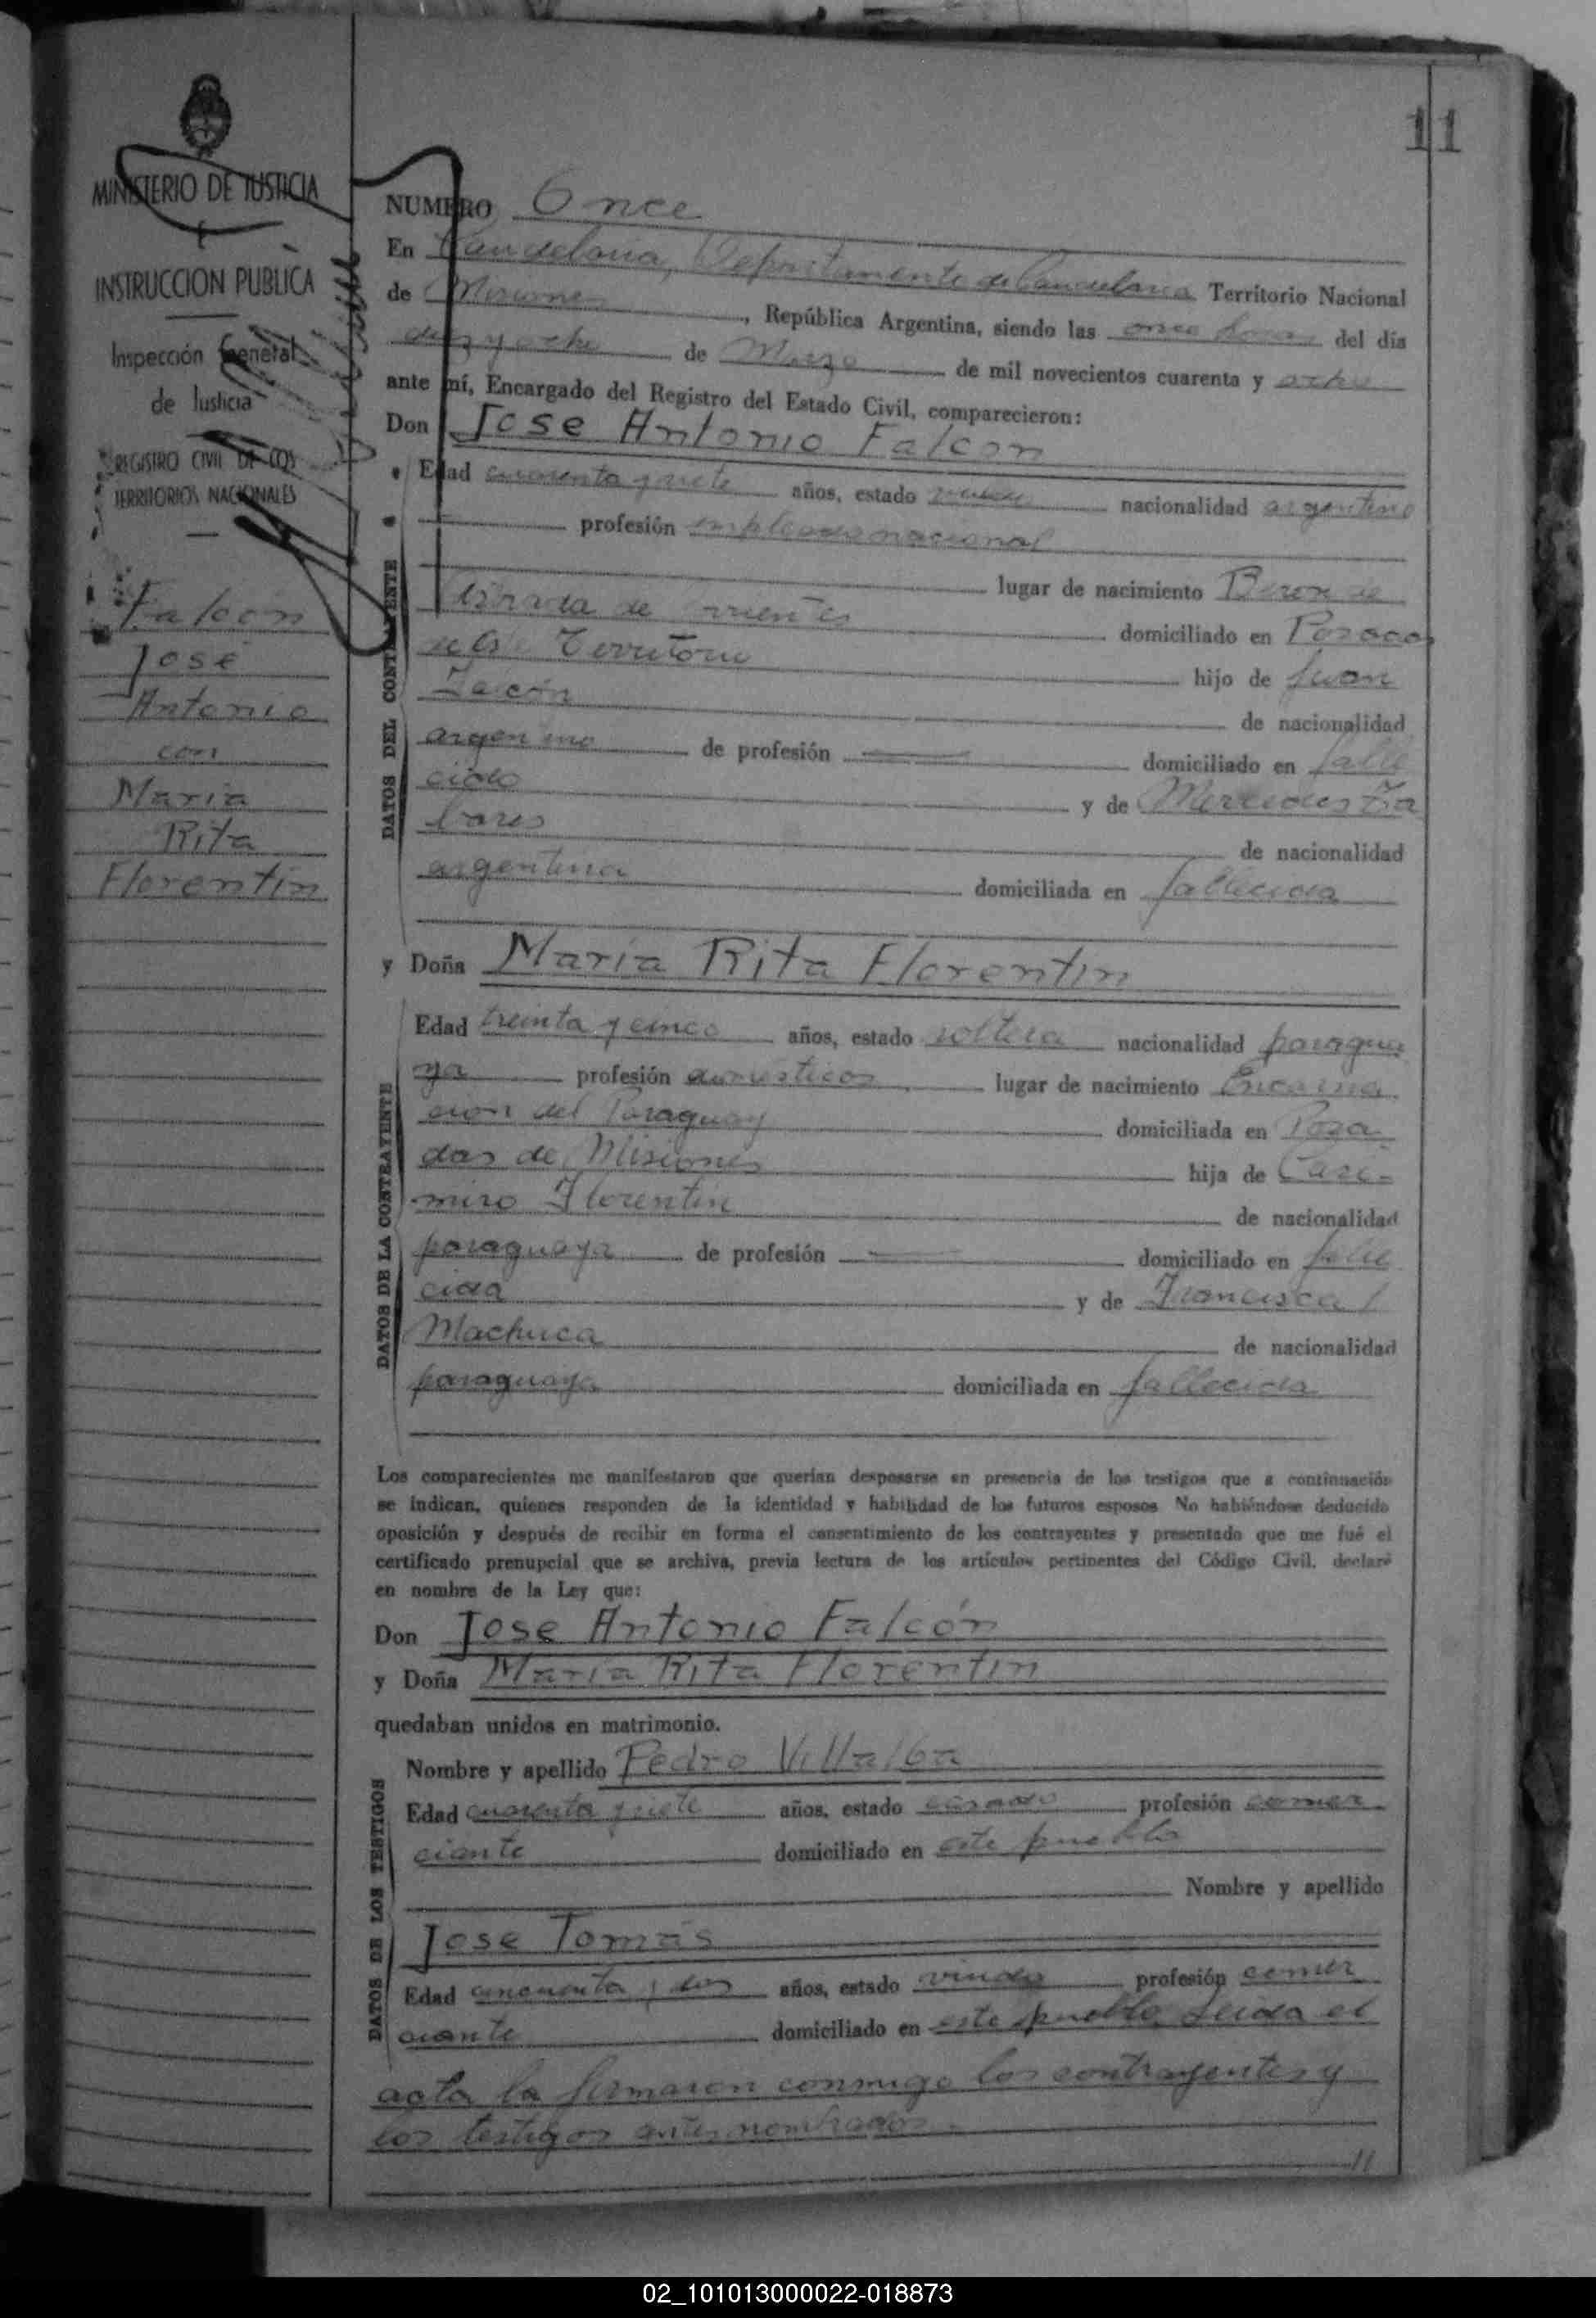 11
MINISTERIO DE JUSTICIA
E
INSTRUCCION PUBLICA
Inspección General
de Justicia
REGISTRO CIVIL DE LOS
TERRITORIOS NACIONALES
Falcón
José
Antonio
con
María
Rita
Florentín
NUMERO Once
En Candelaria, Departamento de Candelaria Territorio Nacional
de Misiones, República Argentina, siendo las once horas del día
diez y ocho de Marzo de mil novecientos cuarenta y ocho
ante mí, Encargado del Registro del Estado Civil, comparecieron:
Don Jose Antonio Falcon
DATOS DEL CONTRAYENTE
Edad cuarenta y siete años, estado viudo nacionalidad argentino
profesión empleado nacional
lugar de nacimiento Beron de
Astrada de Corrientes domiciliado en Posadas
de este Territorio hijo de Juan
Falcón de nacionalidad
argentino de profesión domiciliado en falle
cido y de Mercedes Ta
bares de nacionalidad
argentina domiciliada en fallecida
y Doña María Rita Florentin
DATOS DE LA CONTRAYENTE
Edad treinta y cinco años, estado soltera nacionalidad paragua
ya profesión domesticos lugar de nacimiento Encarna
cion del Paraguay domiciliada en Posa
das de Misiones hija de Casi-
miro Florentin de nacionalidad
paraguaya de profesión domiciliado en falle
cida y de Francisca
Machuca de nacionalidad
paraguaya domiciliada en fallecida
Los comparecientes me manifestaron que querían desposarse en presencia de los testigos que a continuación
se indican, quienes responden de la identidad y habilidad de los futuros esposos No habiéndose deducido
oposición y después de recibir en forma el consentimiento de los contrayentes y presentado que me fué el
certificado prenupcial que se archiva, previa lectura de los artículos pertinentes del Código Civil, declaré
en nombre de la Ley que:
Don Jose Antonio Falcón
y Doña María Rita Florentin
quedaban unidos en matrimonio.
DATOS DE LOS TESTIGOS
Nombre y apellido Pedro Villalba
Edad cuarenta y siete años, estado casado profesión comer
ciante domiciliado en este pueblo
Nombre y apellido
Jose Tomás
Edad cincuenta y dos años, estado viudo profesión comer
ciante domiciliado en este pueblo. Leida el
acta la firmaron conmigo los contrayentes y
los testigos antes nombrados.
11
02_101013000022-018873